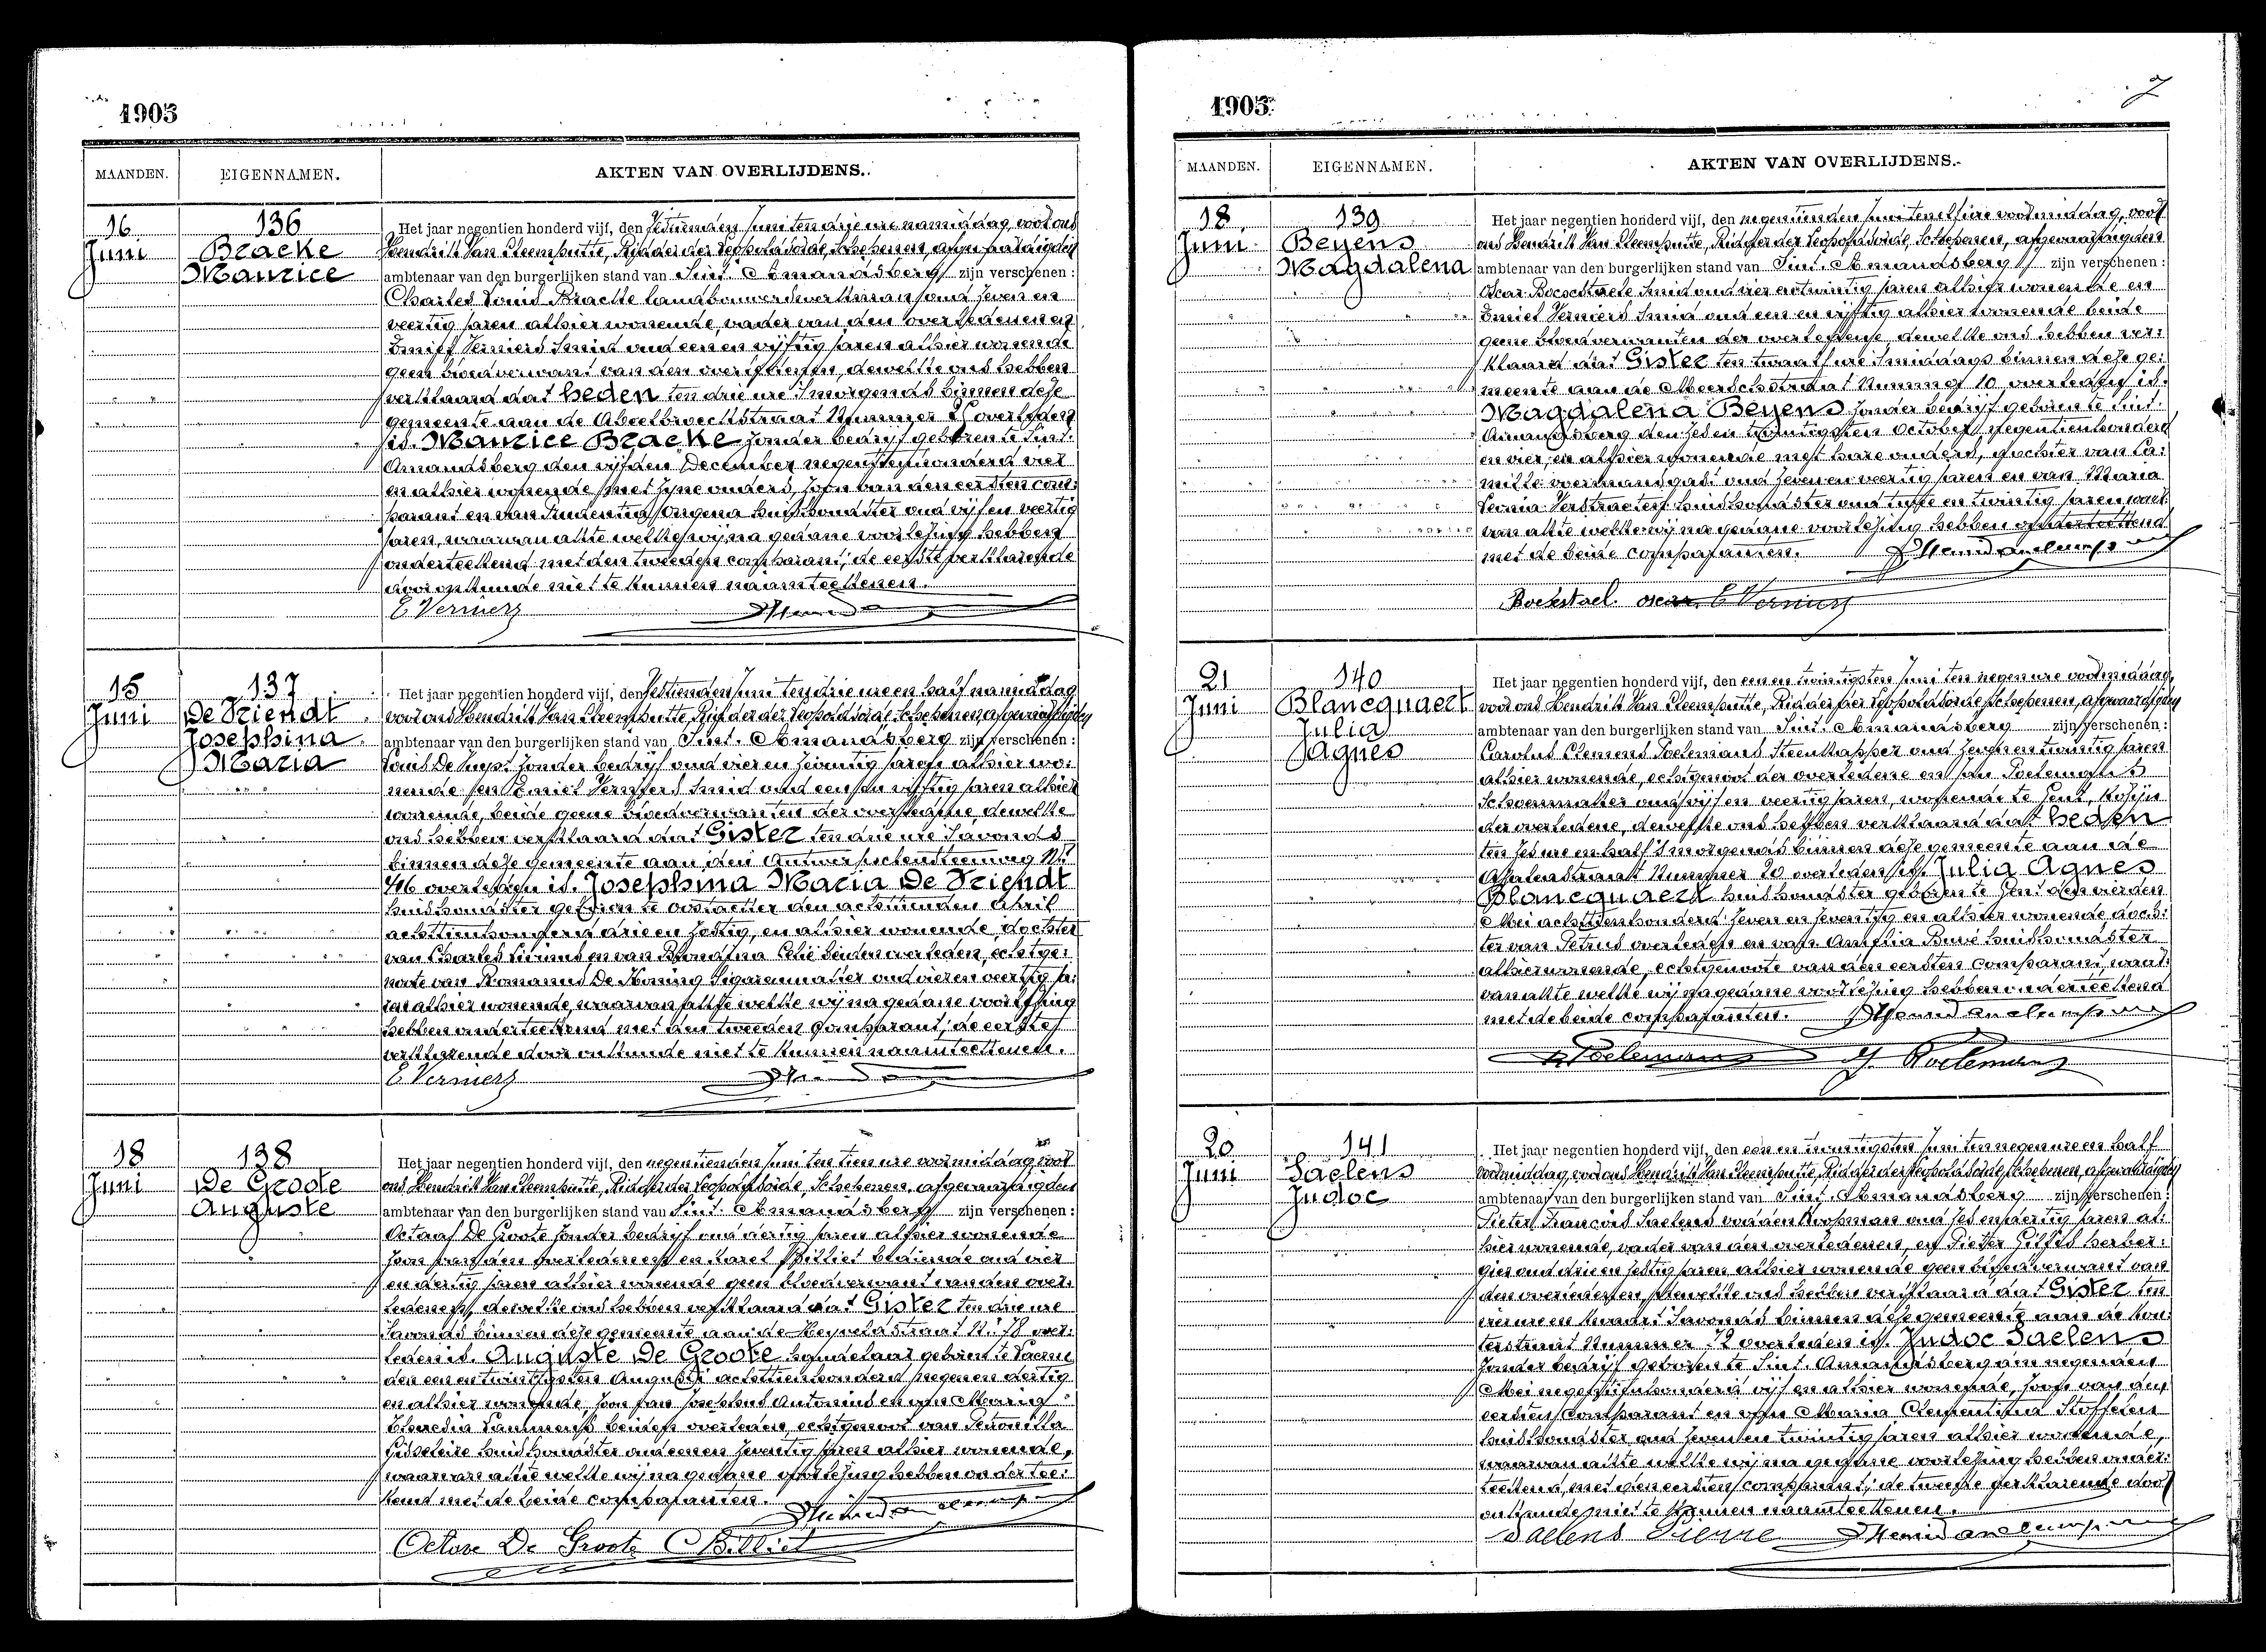 1905
MAANDEN. EIGENNAMEN. AKTEN VAN OVERLIJDENS.
16 Juni
136
Bracke
Maurice
Het jaar negentien honderd vijf, den zestienden Juni ten drie ure namiddag, voor ons
Hendrik Van Steenputte, Ridder der Leopoldsorde, Schepenen, afgevaardigden
ambtenaar van den burgerlijken stand van Sint Amandsberg zijn verschenen:
Charles Louis Bracke landbouwerswerkman oud zeven en
veertig jaren alhier wonende, vader van den overledenen en
Emiel Verniers Smid oud een en vijftig jaren alhier wonende
geen bloedverwant van den overledenen, dewelke ons hebben
verklaard dat heden ten drie ure 's morgends binnen deze
gemeente aan de straat Nummer overleden
is. Maurice Bracke zonder bedrijf geboren te Sint.
Amandsberg den vijfden December negentienhonderd vier
en alhier wonende met zijne ouders, zoon van den eersten com:
parant en van huishoudster oud vijf en veertig
jaren, waarvan akte welke wij na gedane voorlezing hebben
onderteekend met den tweeden comparant, de eerste verklarende
door onkunde niet te kunnen naamteekenen.
E Verniers
15 Juni
137
De Vriendt
Josephina
Maria
Het jaar negentien honderd vijf, den zestienden Juni ten drie ure en half namiddag
voor ons Hendrik Van Steenputte, Ridder der Leopoldsorde, Schepenen, afgevaardigden
ambtenaar van den burgerlijken stand van Sint. Amandsberg zijn verschenen:
Louis De zonder bedrijf oud vier en zeventig jaren alhier wo:
nende en Emiel Verniers Smid oud een en vijftig jaren alhier
wonende, beide geene bloedverwanten der overledene, dewelke
ons hebben verklaard dat Gister ten drie ure 's avonds
binnen deze gemeente aan den Antwerpschensteenweg Nr
overleden is. Josephina Maria De Vriendt
huishoudster geboren te Oostacker den achttienden April
achttienhonderd drie en zestig, en alhier wonende, dochter
van Charles Livinus en van Blondina beiden overleden, echtge:
noote van Romanus De Koning Sigarenmaker oud vier en veertig ja:
ren alhier wonende, waarvan akte welke wij na gedane voorlezing
hebben onderteekend met den tweeden comparant, de eerste
verklarende door onkunde niet te kunnen naamteekenen.
E Verniers
18 Juni
138
De Groote
Auguste
Het jaar negentien honderd vijf, den negentienden Juni ten tien ure voormiddag voor
ons Hendrik Van Steenputte, Ridder der Leopoldsorde, Schepenen, afgevaardigden
ambtenaar van den burgerlijken stand van Sint. Amandsberg zijn verschenen:
Octaaf De Groote zonder bedrijf oud dertig jaren alhier wonende
zoon van den overledenen en Karel Billiet bediende oud vier
en dertig jaren alhier wonende geen bloedverwant van den over:
ledenen, dewelke ons hebben verklaard dat Gister ten drie ure
's avonds binnen deze gemeente aan de straat Nr 78 over:
leden is. Auguste De Groote handelaar geboren te
den een en twintigsten Augusti achttienhonderd negen en dertig
en alhier wonende, zoon van Josephus Antonius en van Maria
Theresia beiden overleden echtgenoot van Petronilla
huishoudster oud een en zeventig jaren alhier wonende,
waarvan akte welke wij na gedane voorlezing hebben ondertee:
kend met de beide comparanten.
Octave De Groote C Billiet
1905.
MAANDEN. EIGENNAMEN. AKTEN VAN OVERLIJDENS.
18 Juni
139
Beyens
Magdalena
Het jaar negentien honderd vijf, den negentienden Juni ten elf ure voormiddag, voor
ons Hendrik Van Steenputte, Ridder der Leopoldsorde, Schepenen, afgevaardigden
ambtenaar van den burgerlijken stand van Sint. Amandsberg zijn verschenen:
Oscar Boeckstaele Smid oud vier en twintig jaren alhier wonende en
Emiel Verniers Smid oud een en vijftig alhier wonende beide
geene bloedverwanten der overledene, dewelke ons hebben ver:
klaard dat Gister ten twaalf ure 's middags binnen deze ge:
meente aan de Meerschstraat Nummer 10 overleden is.
Magdalena Beyens zonder bedrijf geboren te Sint.
Amandsberg den zes en twintigsten October negentienhonderd
en vier, en alhier wonende met hare ouders, dochter van Ca:
mille voermansgast oud zeven en veertig jaren en van Maria
Leonia Verstraeten huishoudster oud en twintig jaren, waar:
van akte welke wij na gedane voorlezing hebben onderteekend
met de beide comparanten.
Boekstael oscar E Verniers
21 Juni
140
Blancquaert
Julia
Agnes
Het jaar negentien honderd vijf, den een en twintigsten Juni ten negen ure voormiddag,
voor ons Hendrik Van Steenputte, Ridder der Leopoldsorde, Schepenen, afgevaardigden
ambtenaar van den burgerlijken stand van Sint. Amandsberg zijn verschenen:
Carolus Clemens Poelemans Steenkapper oud zeven en twintig jaren
alhier wonende, echtgenoot der overledene en Jan Poelemans
Schoenmaker oud vijf en veertig jaren, wonende te Gent, kozijn
der overledene, dewelke ons hebben verklaard dat heden
ten zes ure en half 's morgends binnen deze gemeente aan de
straat Nummer 20 overleden is. Julia Agnes
Blancquaert huishoudster geboren te Gent den vierden
Mei achttienhonderd zeven en zeventig en alhier wonende doch:
ter van Petrus overleden en van Amelia Buvé huishoudster
alhier wonende, echtgenoote van den eersten comparant, waar:
van akte welke wij na gedane voorlezing hebben onderteekend
met de beide comparanten.
Poelemans J. Poelemans
20 Juni
141
Saelens
Judoc
Het jaar negentien honderd vijf, den een en twintigsten Juni ten negen ure en half
voormiddag, voor ons Hendrik Van Steenputte, Ridder der Leopoldsorde, Schepenen, afgevaardigden
ambtenaar van den burgerlijken stand van Sint. Amandsberg zijn verschenen:
Pieter François Saelens oud zes en dertig jaren al:
hier wonende, vader van den overledenen, en Pieter Gillis herber:
gier oud drie en zestig jaren alhier wonende geen bloedverwant van
den overledenen, dewelke ons hebben verklaard dat Gister ten
vier ure en kwart 's avonds binnen deze gemeente aan de Kou:
terstraat Nummer 72 overleden is. Judoc Saelens
zonder bedrijf geboren te Sint. Amandsberg den negenden
Mei negentienhonderd vijf en alhier wonende, zoon van den
eersten comparant en van Maria Clementina Stoffelen
huishoudster oud zeven en twintig jaren alhier wonende,
waarvan akte welke wij na gedane voorlezing hebben onder:
teekend, met den eersten comparant, de tweede verklarende door
onkunde niet te kunnen naamteekenen.
Saelens Pierre